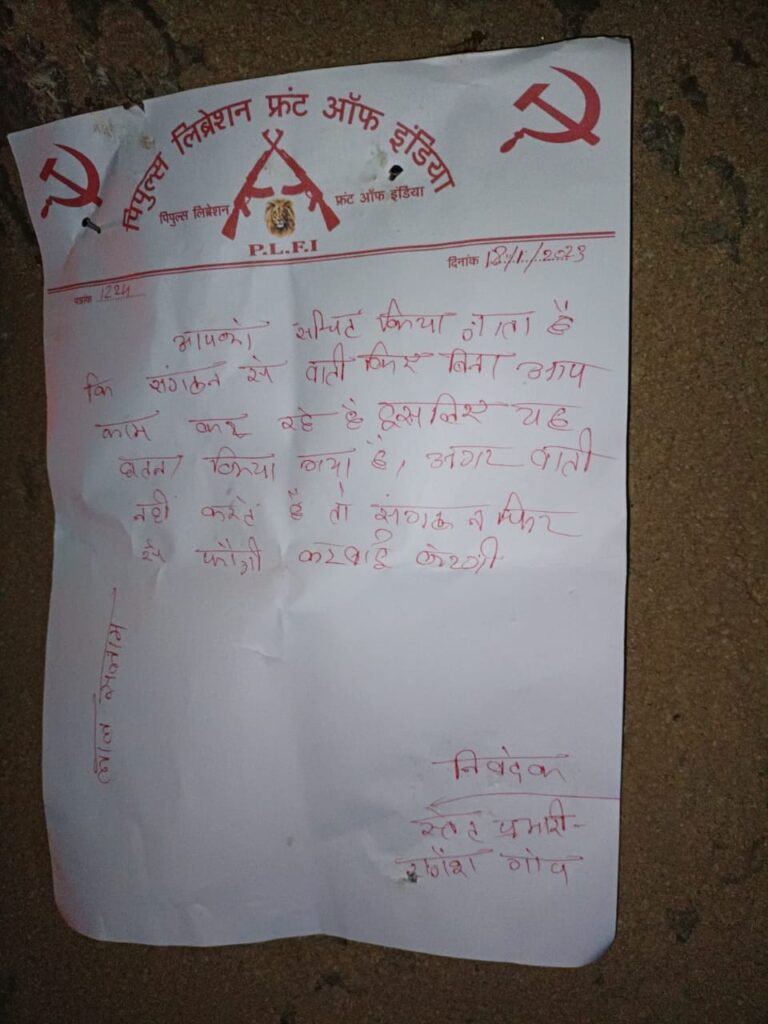 पिपुल्स लिब्रेशन फ्रंट ऑफ इंडिया
पिपुल्स लिब्रेशन फ्रंट ऑफ इंडिया
P.L.F.I
दिनांक 18/1/2023
पत्रांक 1224
आपको सुचित किया जाता है
कि संगठन से वार्ता किए बिना आप
काम कर रहे है इसलिए यह
घटना किया गया है, अगर वार्ता
नहीं करते है तो संगठन फिर
से फौजी करवाई करेगी
लाल सलाम
निवेदक
स्टेट प्रभारी-
राजेश गोप